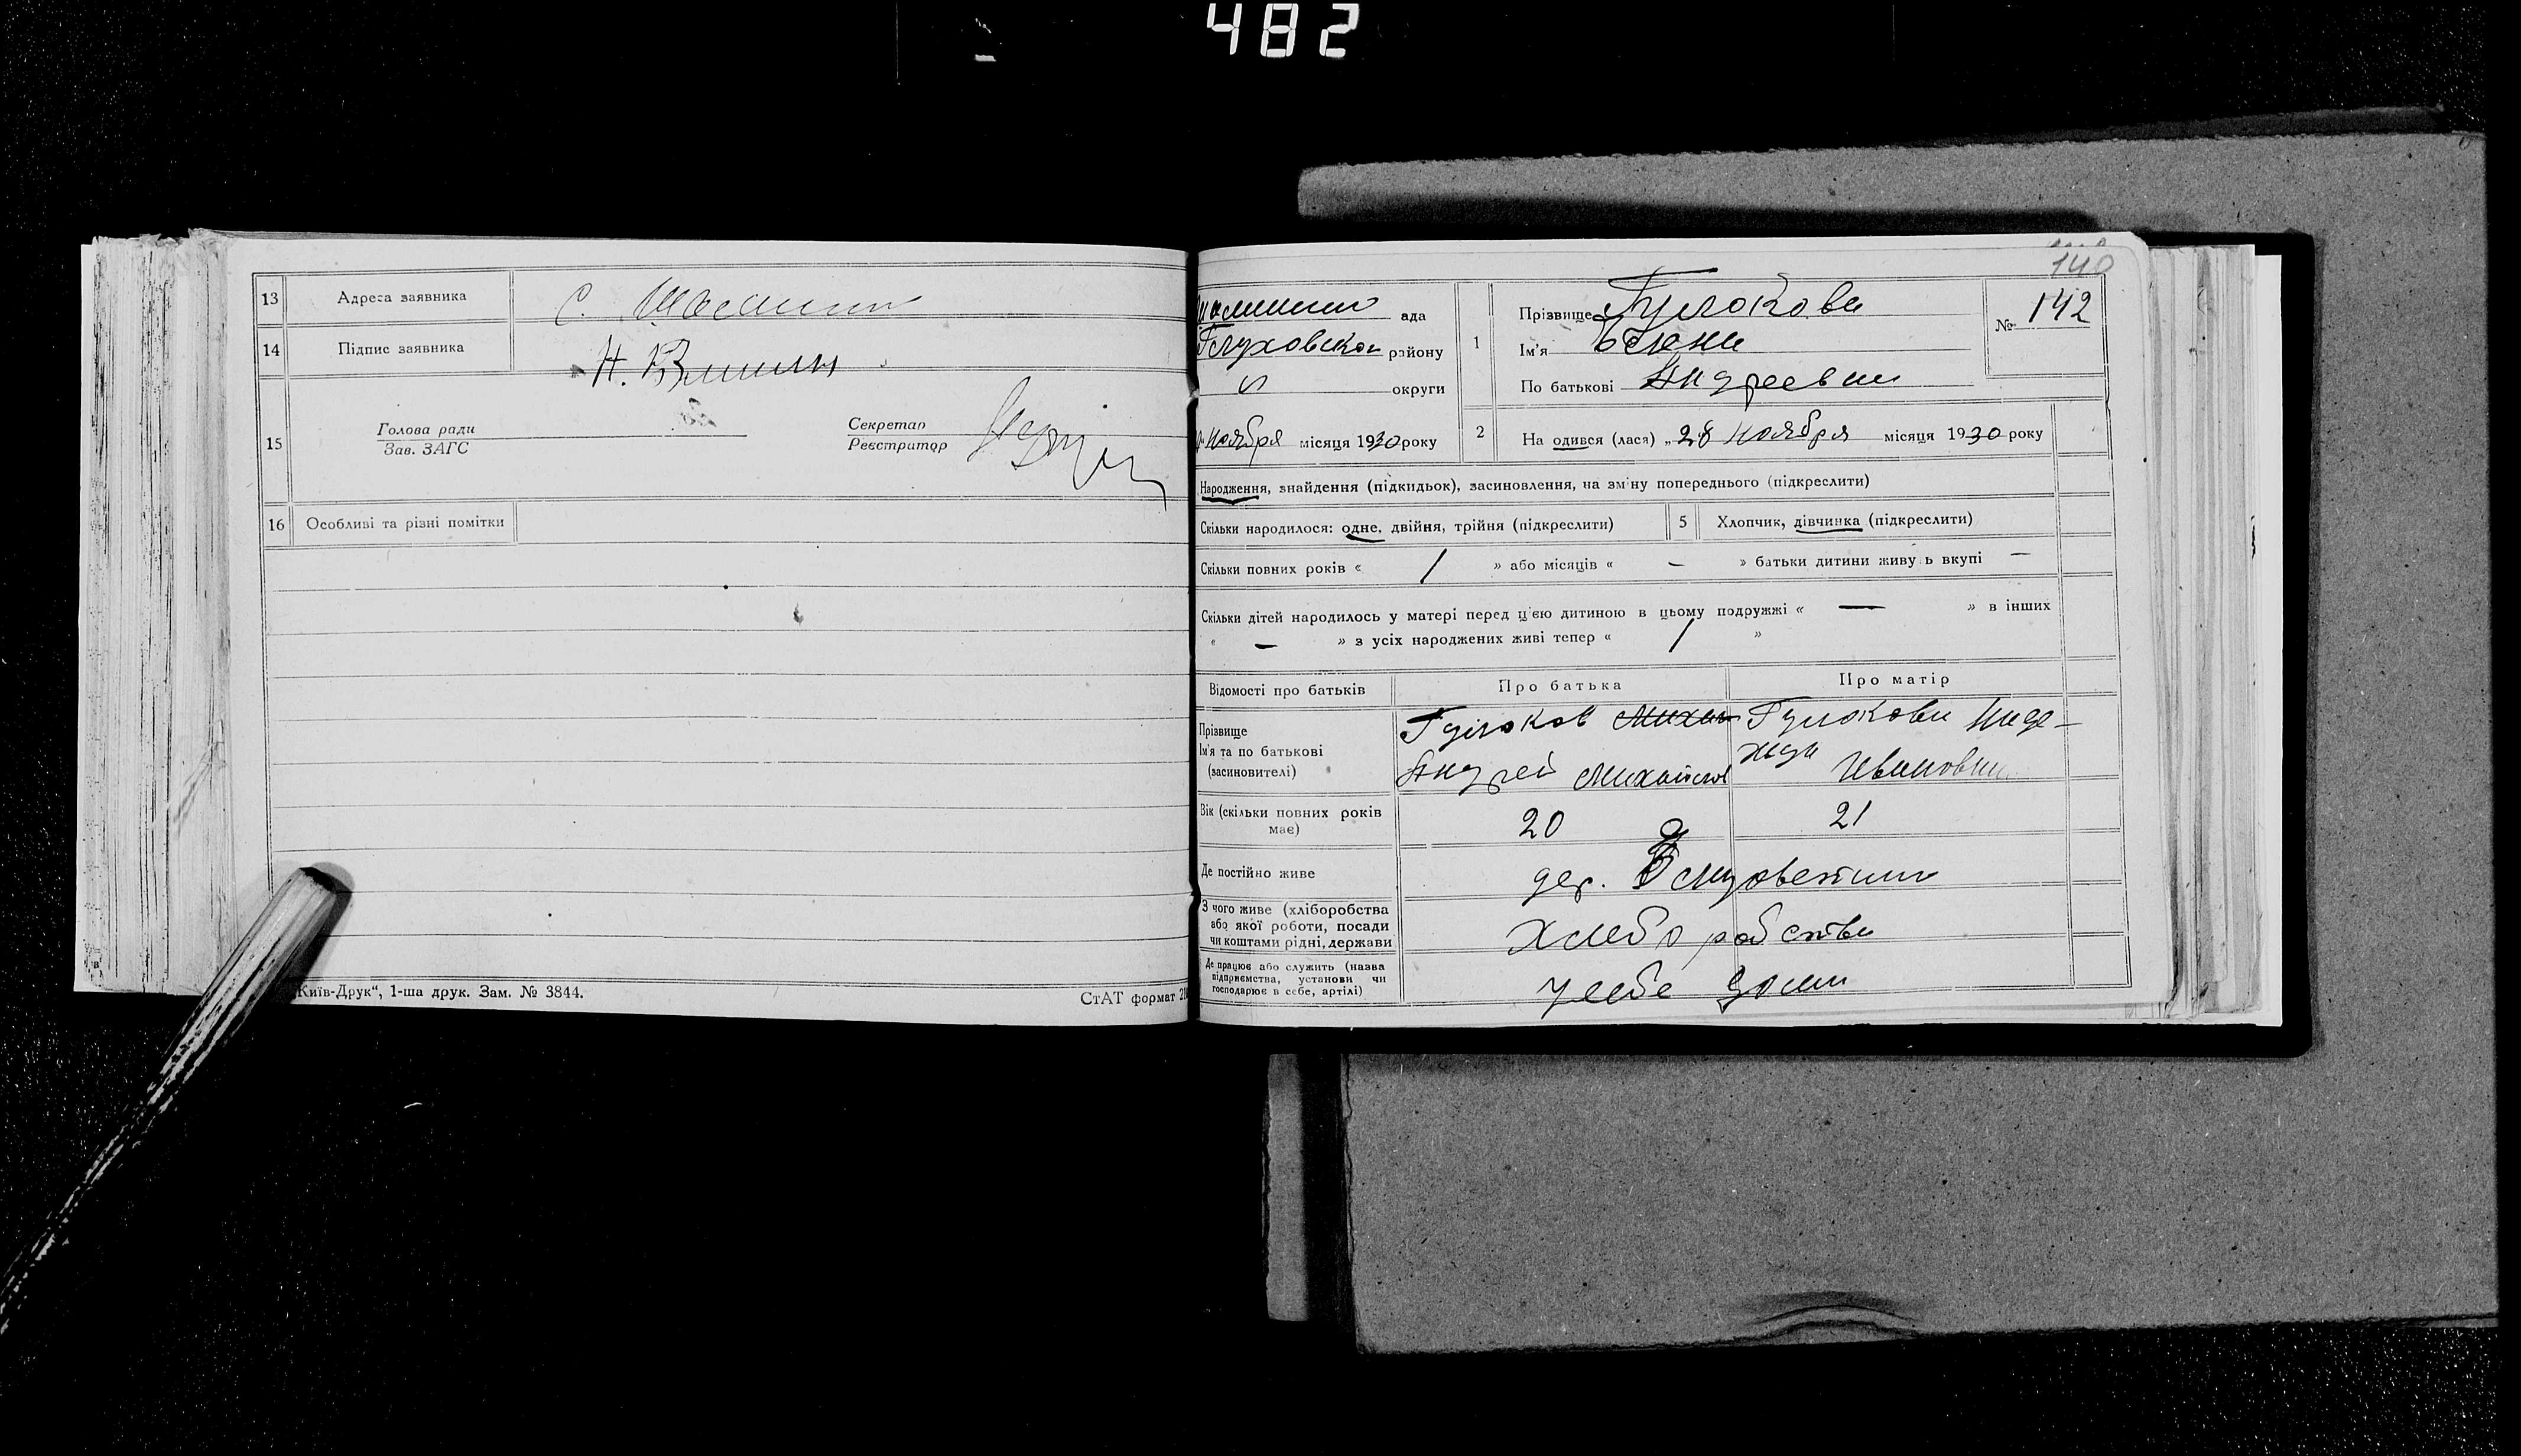 482
13 Адреса заявника с. Шалыгино
14 Підпис заявника Н.
15 Голова ради
Зав. ЗАГС
Секретар
Реєстратор
16 Особливі та різні помітки
Київ-Друк“, 1-ша друк. Зам. № 3844.
СтАТ формат
140
ада
Глуховског району
округи
ноября місяця 1930 року
1 Прізвище Гулюкова
Ім'я
По батькові Андреевна
№ 142
2 На одився (лася) „28 ноября місяця 1930 року
Народження, знайдення (підкидьок), засиновлення, на зміну попереднього (підкреслити)
Скільки народилося: одне, двійня, трійня (підкреслити)
5 Хлопчик, дівчинка (підкреслити)
Скільки повних років « / » або місяців « — » батьки дитини живу ь вкупі —
Скільки дітей народилось у матері перед ц'єю дитиною в цьому подружжі « — » в інших
« — » з усіх народжених живі тепер « / »
Відомості про батьків
Про батька
Про матір
Прізвище
Ім'я та по батькові
(засиновителі)
Гулюков Михаи
Андрей Михайлов
Гулюкова Наде-
жда Ивановна
Вік (скільки повних років
має)
20
21
Де постійно живе
дер.
З чого живе (хліборобства
або якої роботи, посади
чи коштами рідні, держави
Хлеборобства
Де працює або служить (назва
підприємства, установи чи
господарює в себе, артілі)
у себе дома